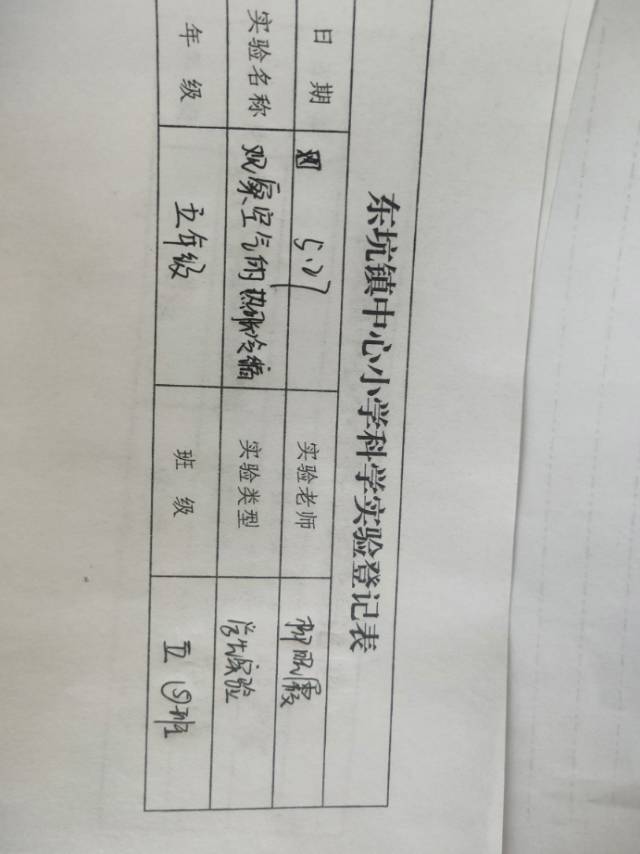 东坑镇中心小学科学实验登记表
日 期 5.27 实验老师
实验名称 观察空气的热胀冷缩 实验类型 学生实验
年 级 五年级 班 级 五 班